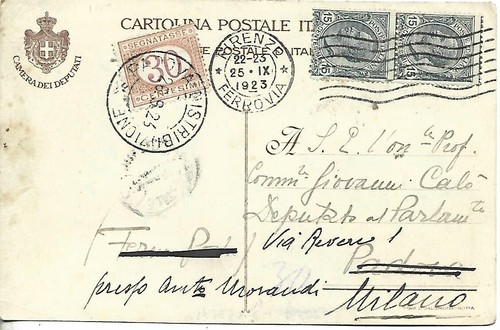 CARTOLINA POSTALE ITA
E POSTALE ITALI
CAMERA DEI DEPUTATI
SEGNATASSE
30
CENTESIMI
FIRENZE
22-23
25·IX
1923
FERROVIA
15
15
15
15
DISTRIBUZIONE
A S. E. l'on.le Prof.
Comm.re Giovanni Calò
Deputato al Parlam.to
Via Revere 1
Padova
presso Morandi
Milano